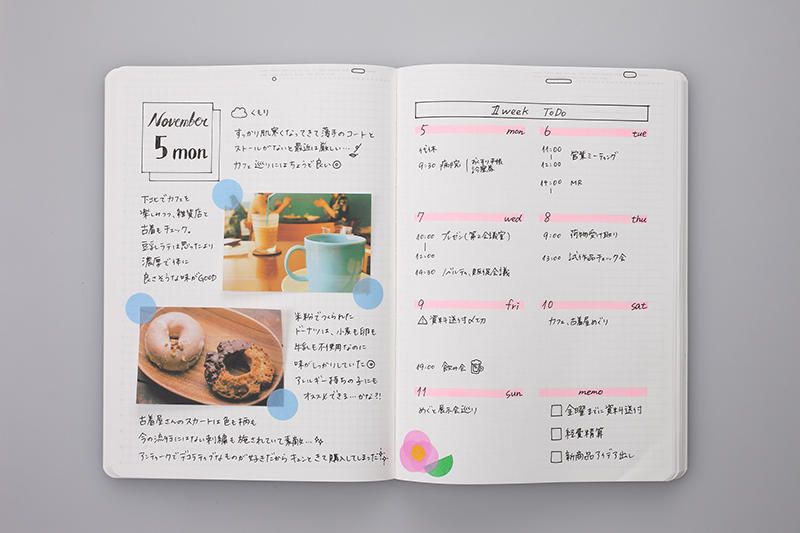 November
5 mon
くもり
すっかり肌寒くなってきて薄手のコートと
ストールがないと最近は厳しい…
カフェ巡りにはちょうど良い
下北でカフェを
楽しみつつ、雑貨店と
古着もチェック。
豆乳ラテは思ったより
濃厚で体に
良さそうな味がGOOD
米粉でつくられた
ドーナツは、小麦も卵も
牛乳も不使用なのに
味がしっかりしていた
アレルギー持ちの子にも
オススメできる…かな?!
古着屋さんのスカートは色も柄も
今の流行にはない刺繍も施されていて素敵…
アンティークでデコラティブなものが好きだからキュンときて購入してしまった
11 week ToDo
5 mon
代休
9:30 病院 おくすり手帳
診察券
6 tue
11:00
12:00 営業ミーティング
14:00 MR
7 wed
10:00 プレゼン(第2会議室)
12:00
14:30 ノベルティ、販促会議
8 thu
9:00 荷物受け取り
13:00 試作品チェック会
9 fri
資料送付〆切
19:00 飲み会
10 sat
カフェ、古着屋めぐり
11 sun
めぐと展示会巡り
memo
金曜までに資料送付
経費精算
新商品アイデア出し